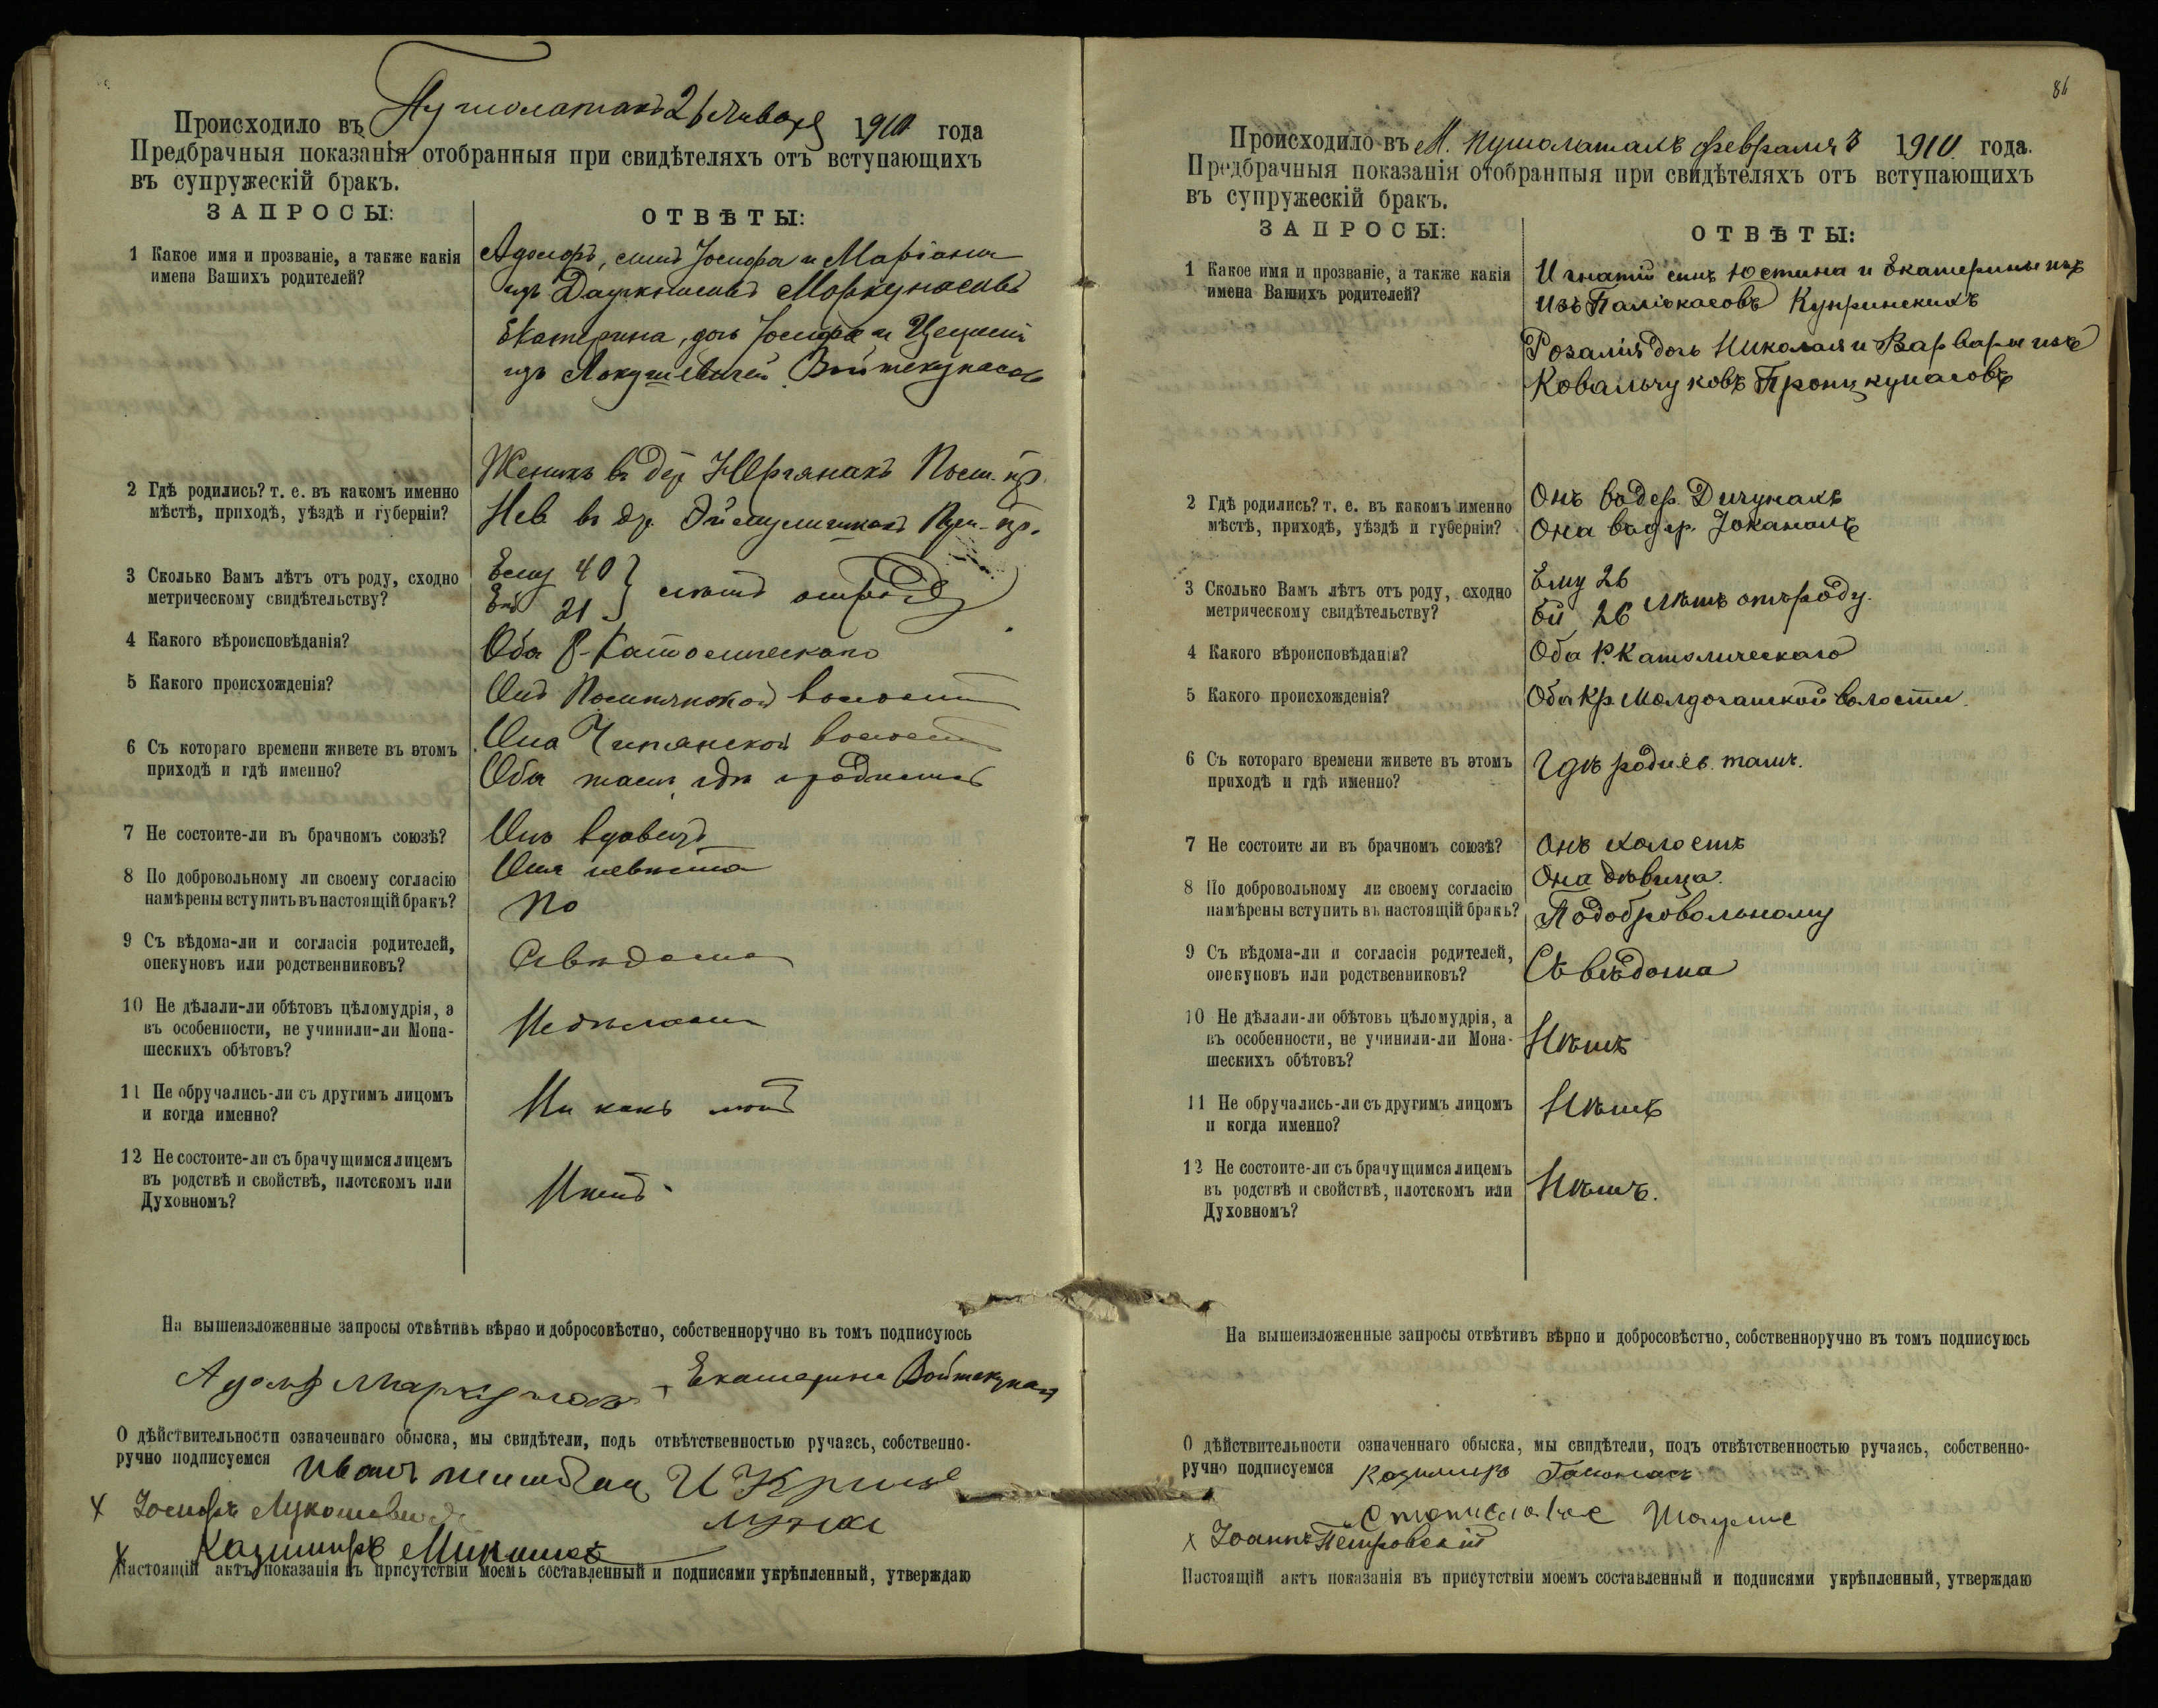 Происходило въ Пушолатахъ 21 Января 1910 года
Предбрачныя показанія отобранныя при свидѣтеляхъ отъ вступающихъ
въ супружескій бракъ.
ЗАПРОСЫ:
ОТВѢТЫ:
1 Какое имя и прозваніе, а также какія
имена Вашихъ родителей?
Адольфъ, сынъ Іосифа и Маріанны
изъ Моркунасовъ
Екатерина, дочь Іосифа и Цециліи
изъ Войтекунасовъ
2 Гдѣ родились? т. е. въ какомъ именно
мѣстѣ, приходѣ, уѣздѣ и губерніи?
Женихъ въ дер.
Нев. въ др.
3 Сколько Вамъ лѣтъ отъ роду, сходно
метрическому свидѣтельству?
Ему 40
Ей 21
лѣтъ отъ роду
4 Какого вѣроисповѣданія?
Оба Р-Католическаго
5 Какого происхожденія?
Онъ волости
Она волости
6 Съ котораго времени живете въ этомъ
приходѣ и гдѣ именно?
Оба тамъ, гдѣ родились
7 Не состоите-ли въ брачномъ союзѣ?
Онъ вдовецъ
Она невѣста
8 По добровольному ли своему согласію
намѣрены вступить въ настоящій бракъ?
По
9 Съ вѣдома-ли и согласія родителей,
опекуновъ или родственниковъ?
Свѣдома
10 Не дѣлали-ли обѣтовъ цѣломудрія, а
въ особенности, не учинили-ли Мона-
шескихъ обѣтовъ?
Недѣлали
11 Не обручались-ли съ другимъ лицомъ
и когда именно?
Ни какъ нѣтъ
12 Не состоите-ли съ брачущимся лицемъ
въ родствѣ и свойствѣ, плотскомъ или
Духовномъ?
Нѣтъ
На вышеизложенные запросы отвѣтивъ вѣрно и добросовѣстно, собственноручно въ томъ подписуюсь
Адольф Екатерина Войтекунас
О дѣйствительности означеннаго обыска, мы свидѣтели, подъ отвѣтственностью ручаясь, собственно-
ручно подписуемся Иванъ
х Іосифъ
х Казимиръ
Настоящій актъ показанія въ присутствіи моемъ составленный и подписями укрѣпленный, утверждаю
86
Происходило въ М. Пушолатахъ февраля 3 1910 года.
Предбрачныя показанія отобранныя при свидѣтеляхъ отъ вступающихъ
въ супружескій бракъ.
ЗАПРОСЫ:
ОТВѢТЫ:
1 Какое имя и прозваніе, а также какія
имена Вашихъ родителей?
Игнатій сынъ Юстина и Екатерины изъ
Купринскихъ
Розалія дочь Николая и Варвары изъ
Ковальчуковъ
2 Гдѣ родились? т. е. въ какомъ именно
мѣстѣ, приходѣ, уѣздѣ и губерніи?
Онъ въ дер. Дичунахъ
Она въ дер.
3 Сколько Вамъ лѣтъ отъ роду, сходно
метрическому свидѣтельству?
Ему 26
Ей 26 лѣтъ отъ роду.
4 Какого вѣроисповѣданія?
Оба Р. Католическаго
5 Какого происхожденія?
Оба Кр. волости.
6 Съ котораго времени живете въ этомъ
приходѣ и гдѣ именно?
Гдѣ родив. тамъ.
7 Не состоите ли въ брачномъ союзѣ?
Онъ холостъ
Она дѣвица.
8 По добровольному ли своему согласію
намѣрены вступить въ настоящій бракъ?
По добровольному
9 Съ вѣдома-ли и согласія родителей,
опекуновъ или родственниковъ?
Съ вѣдома
10 Не дѣлали-ли обѣтовъ цѣломудрія, а
въ особенности, не учинили-ли Мона-
шескихъ обѣтовъ?
Нѣтъ
11 Не обручались-ли съ другимъ лицомъ
и когда именно?
Нѣтъ
12 Не состоите-ли съ брачущимся лицемъ
въ родствѣ и свойствѣ, плотскомъ или
Духовномъ?
Нѣтъ.
На вышеизложенные запросы отвѣтивъ вѣрно и добросовѣстно, собственноручно въ томъ подписуюсь
О дѣйствительности означеннаго обыска, мы свидѣтели, подъ отвѣтственностью ручаясь, собственно-
ручно подписуемся Казимиръ
х Іоаннъ Петровскій
Настоящій актъ показанія въ присутствіи моемъ составленный и подписями укрѣпленный, утверждаю